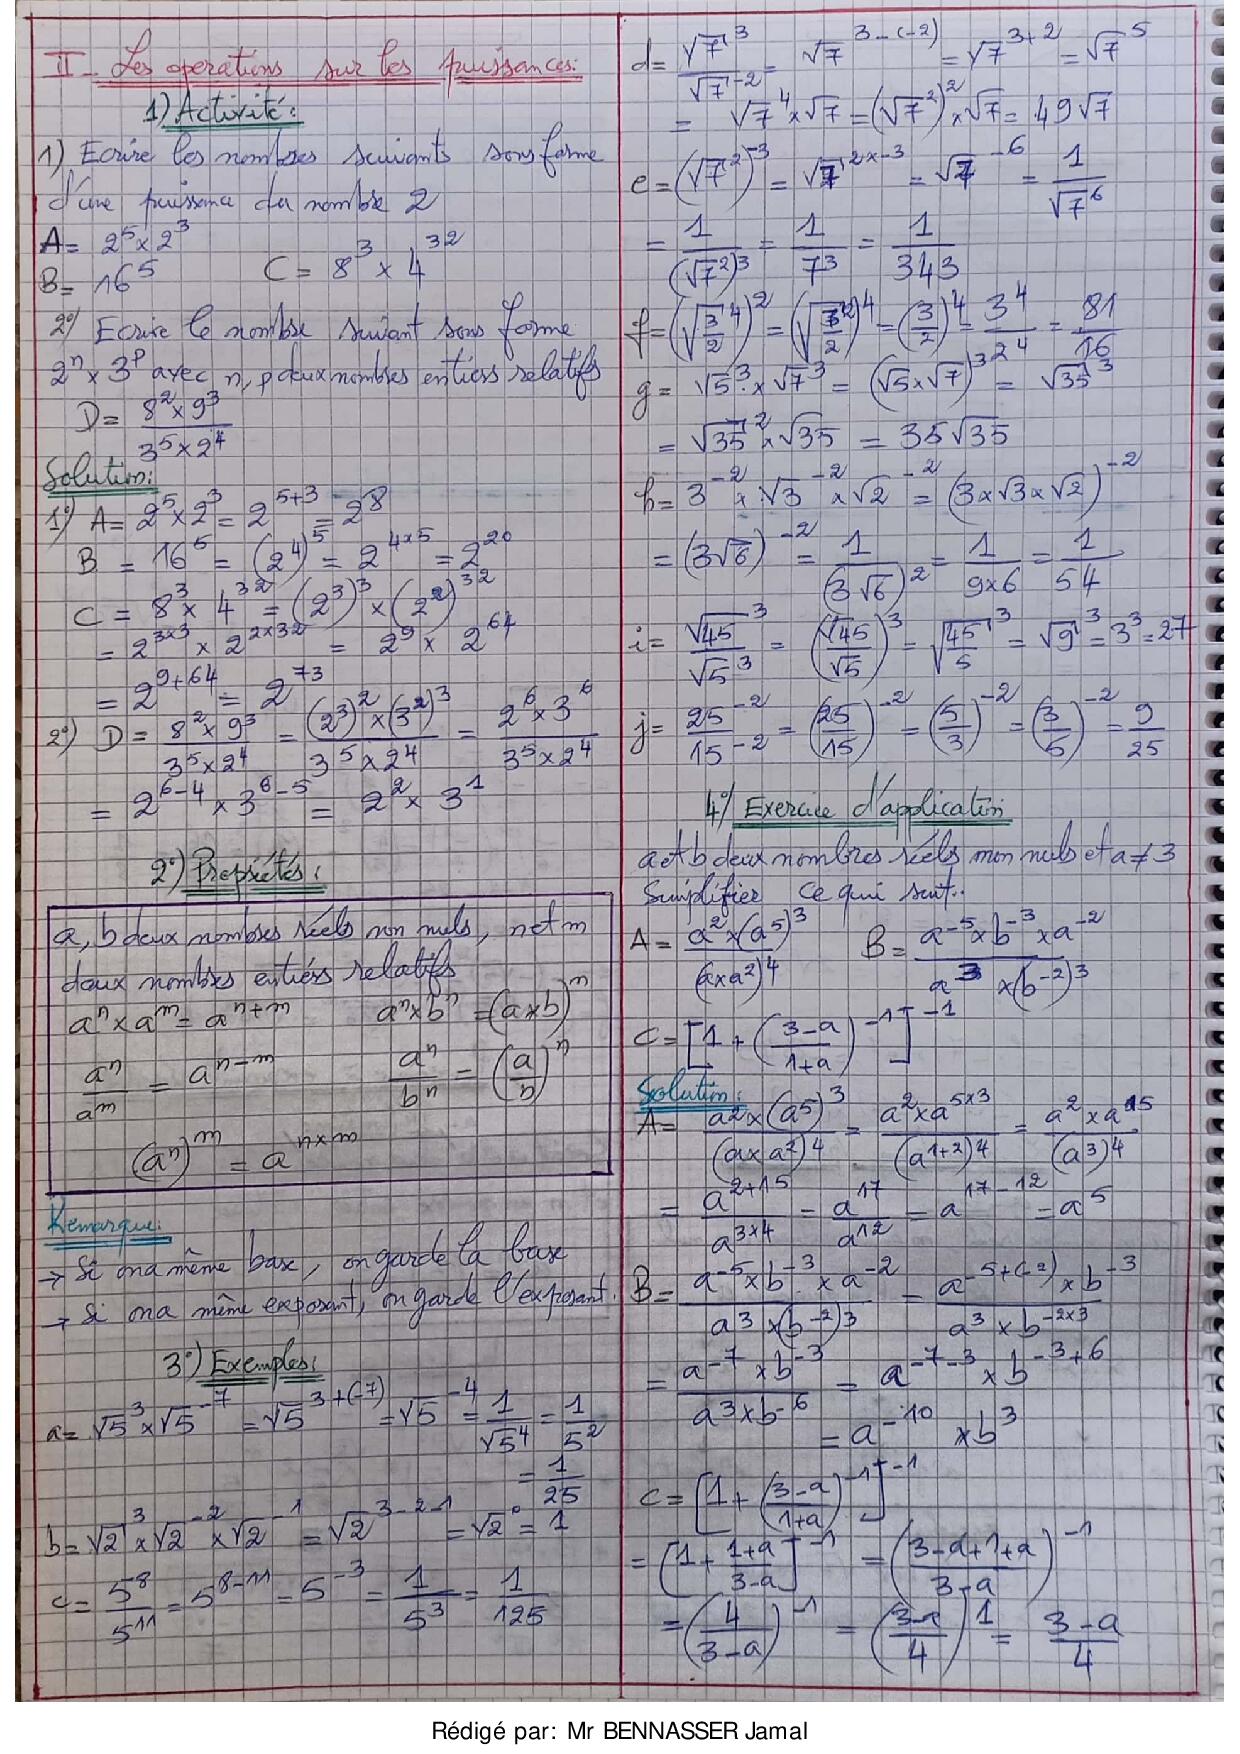 II - Les operations sur les puissances:
1) Activité:
1) Ecrire les nombres suivants sous forme
d'une puissance du nombre 2
A = 2^5 × 2^3
B = 16^5    C = 8^3 × 4^32
2°) Ecrire le nombre suivant sous forme
2^n × 3^p avec n, p deux nombres entiers relatifs
D = (8^2 × 9^3)/(3^5 × 2^4)
Solution:
1°) A = 2^5 × 2^3 = 2^(5+3) = 2^8
B = 16^5 = (2^4)^5 = 2^(4×5) = 2^20
C = 8^3 × 4^32 = (2^3)^3 × (2^2)^32
= 2^(3×3) × 2^(2×32) = 2^9 × 2^64
= 2^(9+64) = 2^73
2°) D = (8^2 × 9^3)/(3^5 × 2^4) = ((2^3)^2 × (3^2)^3)/(3^5 × 2^4) = (2^6 × 3^6)/(3^5 × 2^4)
= 2^(6-4) × 3^(6-5) = 2^2 × 3^1
2°) Propriétés:
a, b deux nombres réels non nuls, n et m
deux nombres entiers relatifs
a^n × a^m = a^(n+m)    a^n × b^n = (a×b)^n
a^n/a^m = a^(n-m)    a^n/b^n = (a/b)^n
(a^n)^m = a^(n×m)
Remarque:
→ Si on a même base, on garde la base
→ Si on a même exposant, on garde l'exposant.
3°) Exemples:
a = √5^3 × √5^-7 = √5^(3+(-7)) = √5^-4 = 1/√5^4 = 1/5^2
= 1/25
b = √2^3 × √2^-2 × √2^-1 = √2^(3-2-1) = √2^0 = 1
c = 5^8/5^11 = 5^(8-11) = 5^-3 = 1/5^3 = 1/125
d = √7^3/√7^-2 = √7^(3-(-2)) = √7^(3+2) = √7^5
= √7^4 × √7 = (√7^2)^2 × √7 = 49√7
e = (√7^2)^-3 = √7^(2×-3) = √7^-6 = 1/√7^6
= 1/(√7^2)^3 = 1/7^3 = 1/343
f = (√(3/2)^4)^2 = (√(3/2)^2)^4 = (3/2)^4 = 3^4/2^4 = 81/16
g = √5^3 × √7^3 = (√5 × √7)^3 = √35^3
= √35^2 × √35 = 35√35
h = 3^-2 × √3^-2 × √2^-2 = (3 × √3 × √2)^-2
= (3√6)^-2 = 1/(3√6)^2 = 1/(9×6) = 1/54
i = √45^3/√5^3 = (√45/√5)^3 = √(45/5)^3 = √9^3 = 3^3 = 27
j = 25^-2/15^-2 = (25/15)^-2 = (5/3)^-2 = (3/5)^-2 = 9/25
4°) Exercice d'application
a et b deux nombres réels non nuls et a ≠ 3
Simplifier ce qui suit..
A = (a^2 × (a^5)^3)/(a×a^2)^4    B = (a^-5 × b^-3 × a^-2)/(a^3 × (b^-2)^3)
C = [1 + ((3-a)/(1+a))^-1]^-1
Solution:
A = (a^2 × (a^5)^3)/(a×a^2)^4 = (a^2 × a^(5×3))/(a^(1+2))^4 = (a^2 × a^15)/(a^3)^4
= a^(2+15)/a^(3×4) = a^17/a^12 = a^(17-12) = a^5
B = (a^-5 × b^-3 × a^-2)/(a^3 × (b^-2)^3) = (a^(-5+(-2)) × b^-3)/(a^3 × b^(-2×3))
= (a^-7 × b^-3)/(a^3 × b^-6) = a^(-7-3) × b^(-3+6)
= a^-10 × b^3
C = [1 + ((3-a)/(1+a))^-1]^-1
= [1 + (1+a)/(3-a)]^-1 = ((3-a+1+a)/(3-a))^-1
= (4/(3-a))^-1 = ((3-a)/4)^1 = (3-a)/4
Rédigé par: Mr BENNASSER Jamal